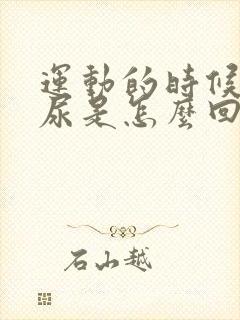 運動的時候
尿是怎麼回
石山越